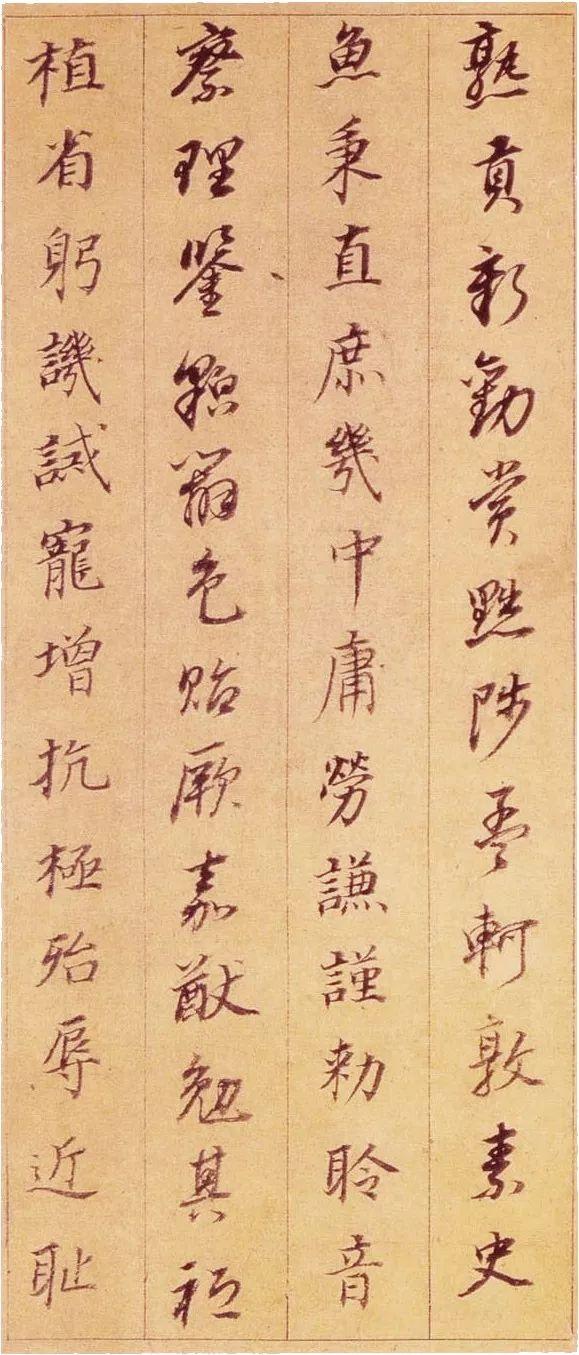 熟貢新勸賞黜陟孟軻敦素史
魚秉直庶幾中庸勞謙謹勅聆音
察理鑒貌辯色貽厥嘉猷勉其祗
植省躬譏誡寵增抗極殆辱近恥